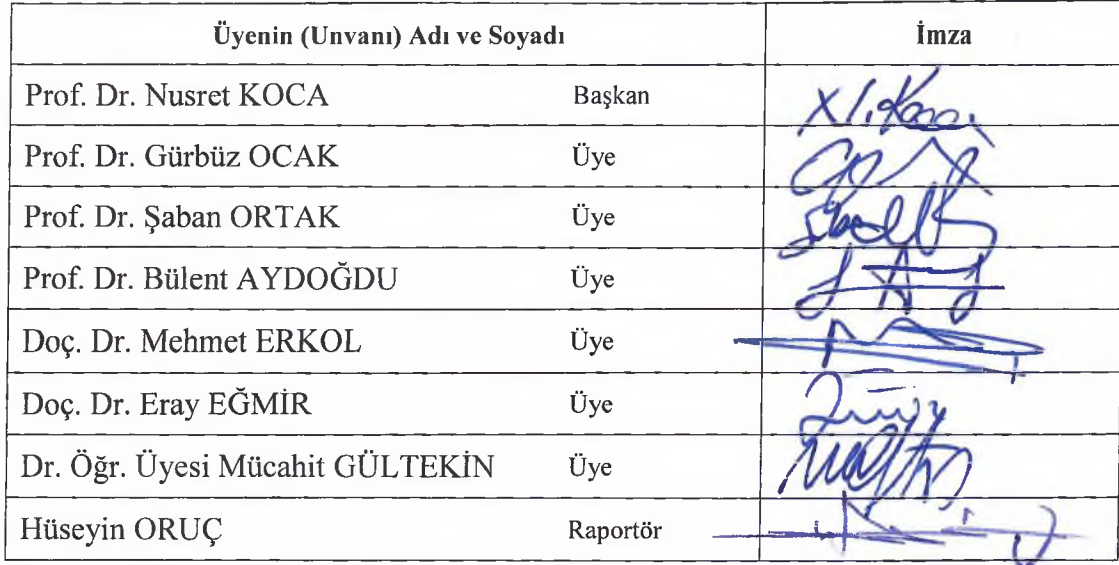 Üyenin (Unvanı) Adı ve Soyadı İmza
Prof. Dr. Nusret KOCA Başkan
Prof. Dr. Gürbüz OCAK Üye
Prof. Dr. Şaban ORTAK Üye
Prof. Dr. Bülent AYDOĞDU Üye
Doç. Dr. Mehmet ERKOL Üye
Doç. Dr. Eray EĞMİR Üye
Dr. Öğr. Üyesi Mücahit GÜLTEKİN Üye
Hüseyin ORUÇ Raportör